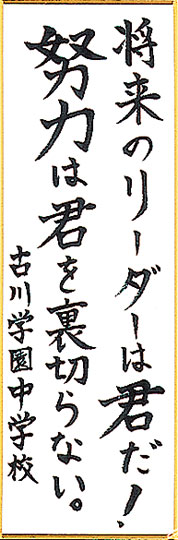 将来のリーダーは君だ！
努力は君を裏切らない。
古川学園中学校